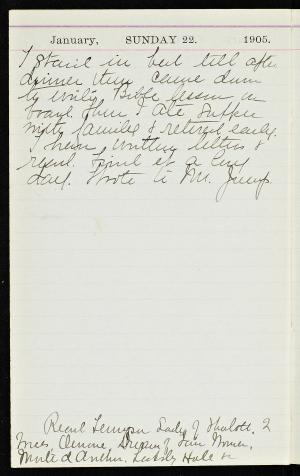 January, SUNDAY 22. 1905.
I staid in bed till after
dinner then came down
to write Bible lesson in
 Then I ate supper
with families & retired early.
I have writing letters &
 of a long
day. Wrote to Mr. Jump.
Read Tennyson Lady of Shalott. 2
 Oenone, Dream of Fair Women,
Morte d'Arthur, Locksley Hall